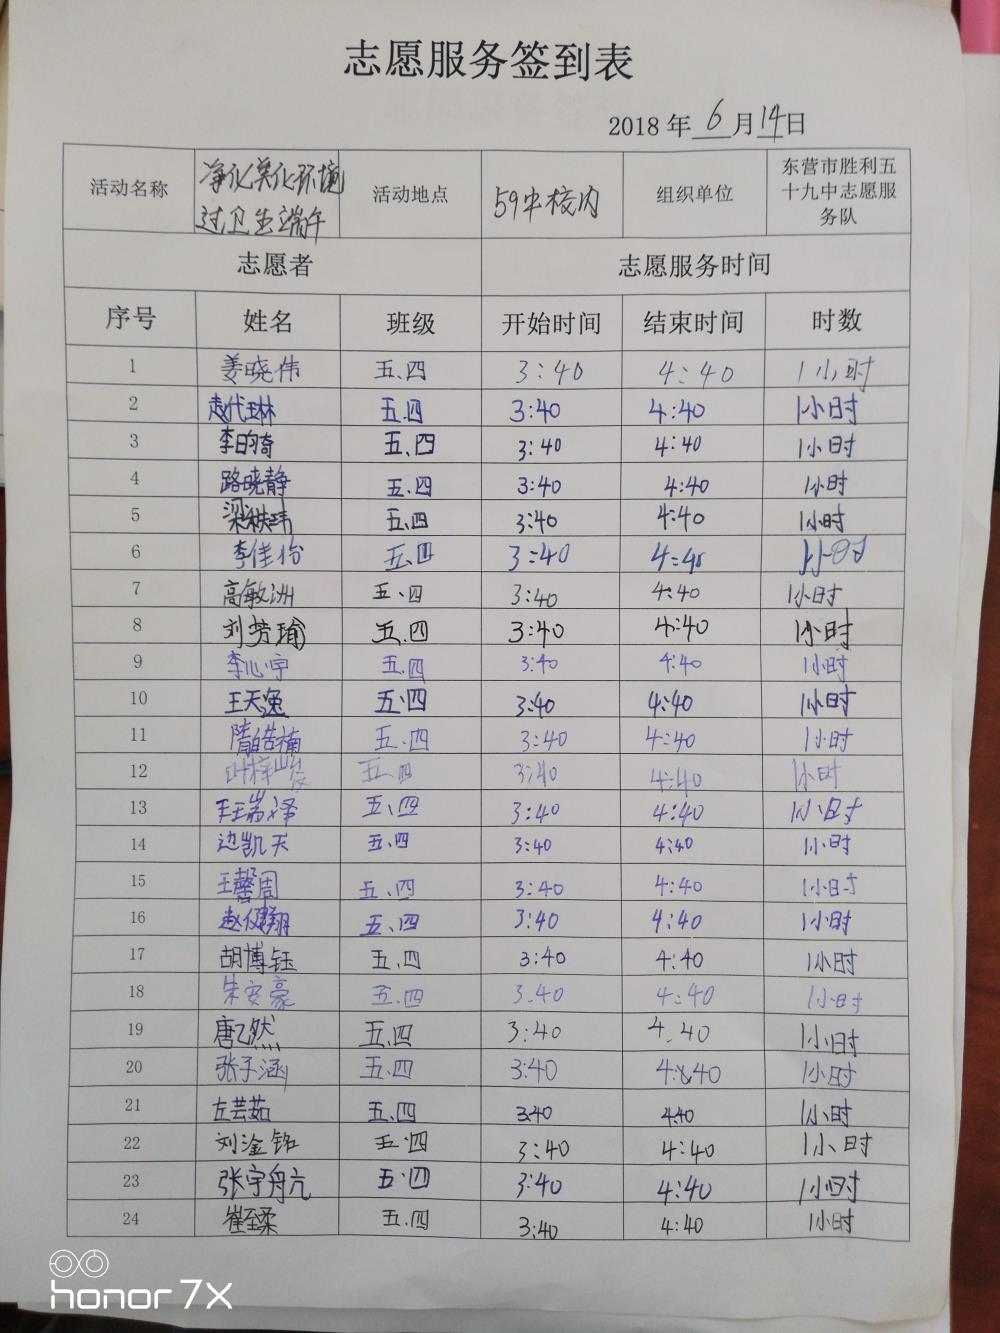 志愿服务签到表
2018 年 6 月 14 日
活动名称 净化美化环境 过卫生端午 活动地点 59中校内 组织单位 东营市胜利五十九中志愿服务队
志愿者 志愿服务时间
序号 姓名 班级 开始时间 结束时间 时数
1 姜晓伟 五.四 3:40 4:40 1小时
2 赵代琳 五.四 3:40 4:40 1小时
3 李昀琦 五.四 3:40 4:40 1小时
4 路晓静 五.四 3:40 4:40 1小时
5 梁轶玮 五.四 3:40 4:40 1小时
6 李佳怡 五.四 3:40 4:40 1小时
7 高敏洲 五.四 3:40 4:40 1小时
8 刘芳瑜 五.四 3:40 4:40 1小时
9 李心宇 五.四 3:40 4:40 1小时
10 王天逸 五.四 3:40 4:40 1小时
11 隋皓楠 五.四 3:40 4:40 1小时
12 五.四 3:40 4:40 1小时
13 王瑞泽 五.四 3:40 4:40 1小时
14 边凯天 五.四 3:40 4:40 1小时
15 王馨周 五.四 3:40 4:40 1小时
16 赵健翔 五.四 3:40 4:40 1小时
17 胡博钰 五.四 3:40 4:40 1小时
18 朱安豪 五.四 3.40 4:40 1小时
19 唐乙然 五.四 3:40 4.40 1小时
20 张子涵 五.四 3:40 4:40 1小时
21 左芸茹 五.四 3:40 4:40 1小时
22 刘淦铭 五.四 3:40 4:40 1小时
23 张宇舟亢 五.四 3:40 4:40 1小时
24 崔至柔 五.四 3:40 4:40 1小时
honor 7X